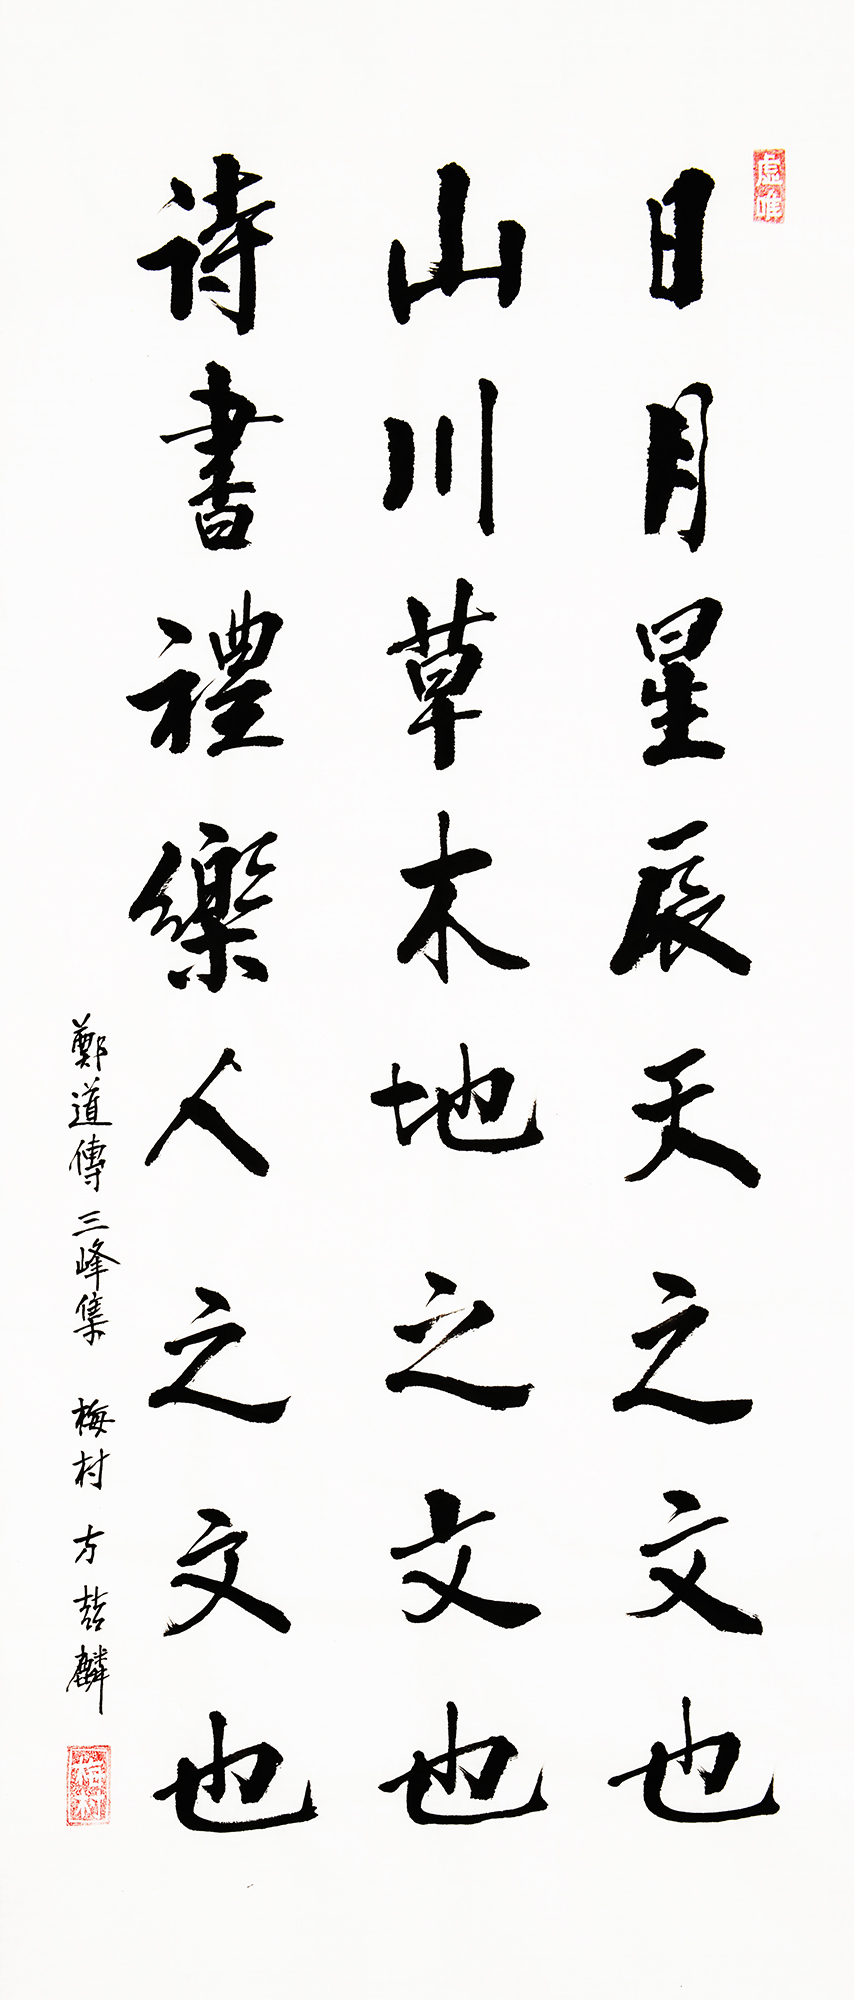 日月星辰天之文也
山川草木地之文也
詩書禮樂人之文也
鄭道傳三峰集 梅村 方喆麟
梅村